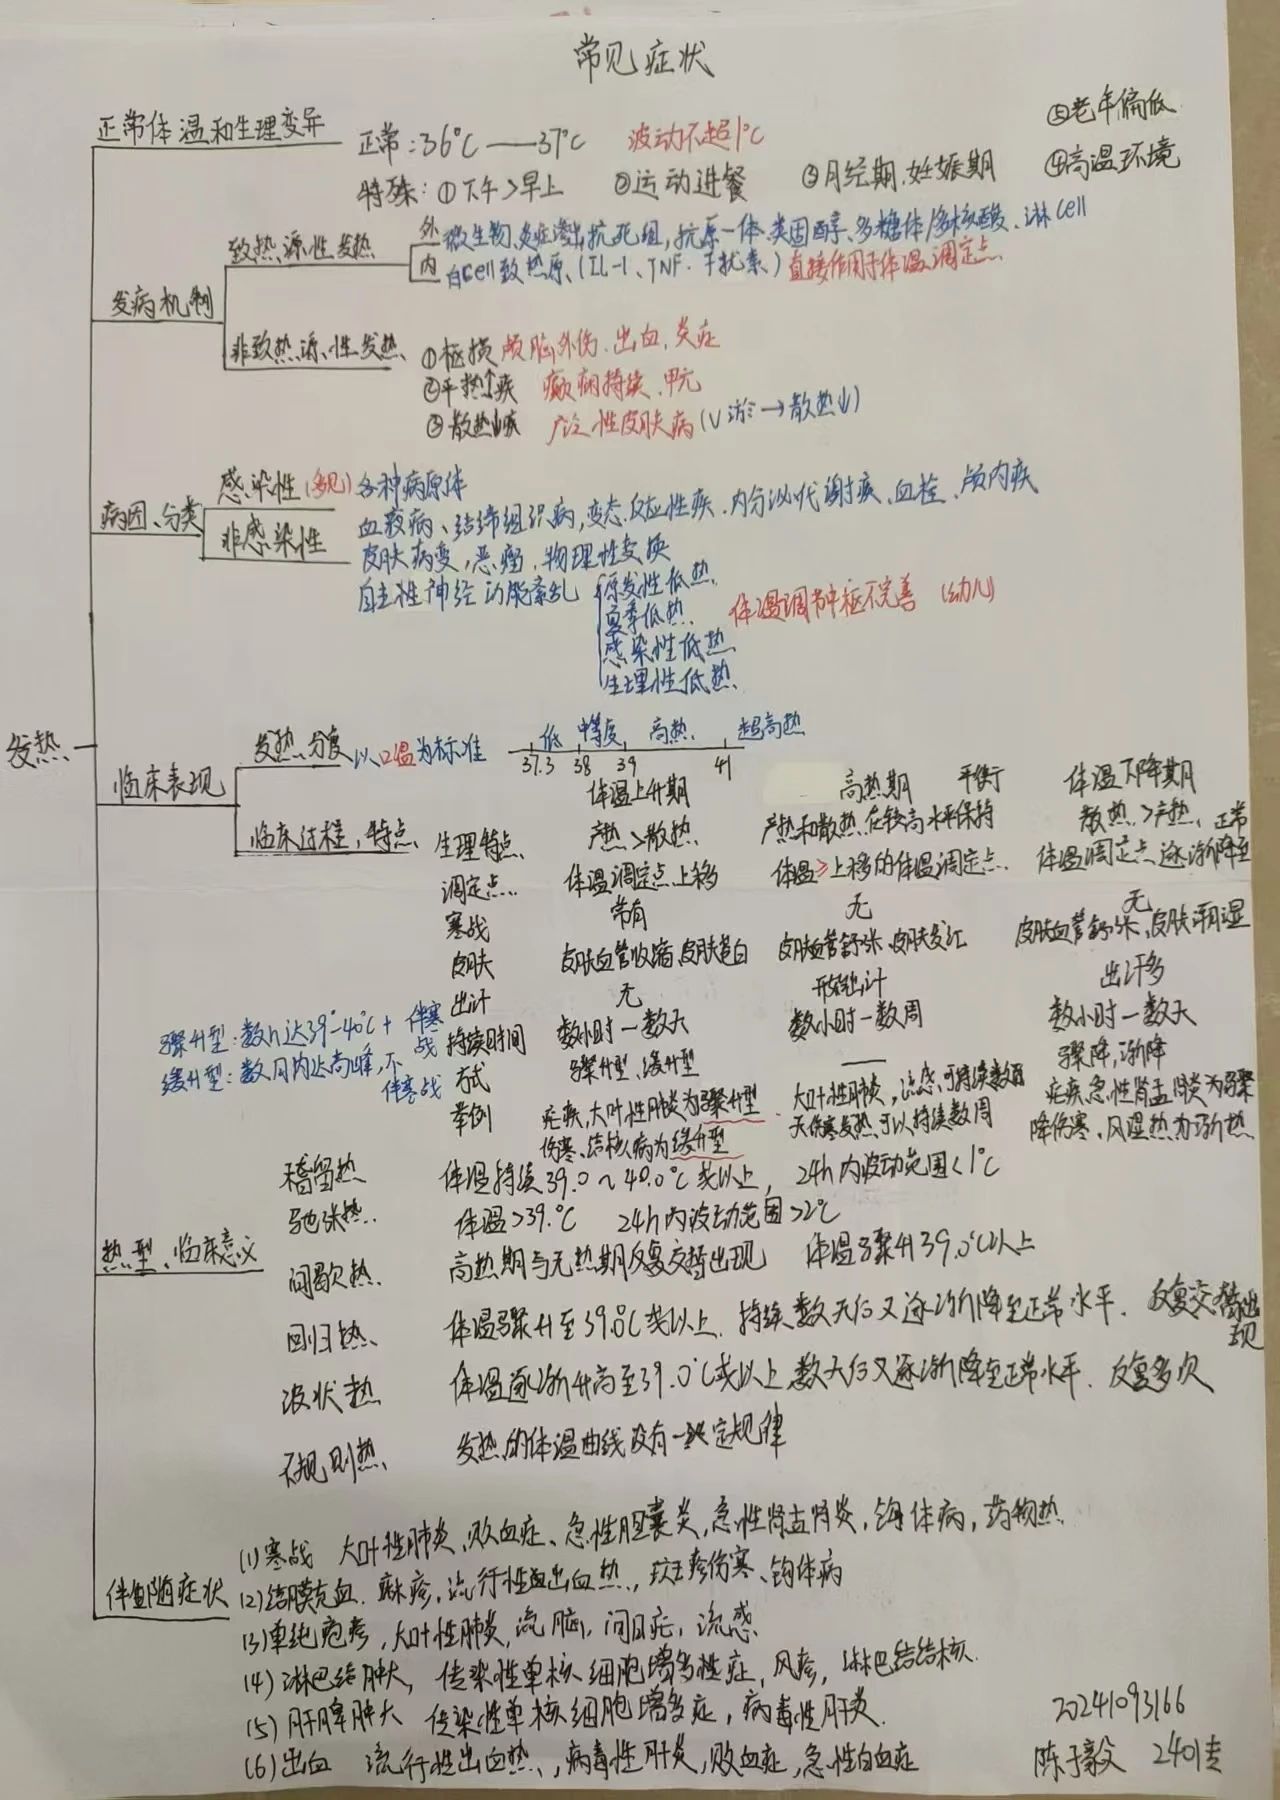 常见症状
正常体温和生理变异
正常:36℃——37℃ 波动不超1℃ ⑤老年偏低
特殊:①下午>早上 ②运动进餐 ③月经期.妊娠期 ④高温环境
致热源性发热
外 微生物、炎症渗出,抗死组,抗原一体.类固醇、多糖体/多核酸、淋cell
内 白cell致热原、(IL-1、TNF.干扰素、)直接作用于体温调定点
发病机制
非致热源性发热 ①枢损 颅脑外伤.出血.炎症
②产热↑疾 癫痫持续.甲亢
③散热↓疾 广泛性皮肤病(V 淤→散热↓)
感染性(多见)各种病原体
病因、分类
非感染性 血液病、结缔组织病,变态反应性疾.内分泌代谢疾、血栓、颅内疾
皮肤病变,恶瘤,物理性
自主性神经功能紊乱 原发性低热
夏季低热 体温调节中枢不完善(幼儿)
感染性低热
生理性低热
发热
临床表现
发热分度 以口温为标准 低 中等度 高热 超高热
37.3 38 39 41
临床过程,特点 体温上升期 高热期 平衡 体温下降期
生理特点 产热>散热 产热和散热在较高水平保持 散热>产热
调定点 体温调定点上移 体温≥上移的体温调定点 体温调定点逐渐降至正常
寒战 常有 无 无
皮肤 皮肤血管收缩、皮肤苍白 皮肤血管舒张、皮肤发红 皮肤血管舒张、皮肤潮湿
出汗 无 开始出汗 出汗多
持续时间 数小时一数天 数小时一数周 数小时一数天
方式 骤升型、缓升型 —— 骤降,渐降
骤升型:数h达39°-40℃+伴寒战
缓升型:数日内达高峰,不伴寒战
举例 疟疾,大叶性肺炎为骤升型 大叶性肺炎,流感,可持续数天 疟疾急性肾盂肾炎为骤
伤寒、结核病为缓升型 伤寒发热,可以持续数周 降伤寒、风湿热为渐热
热型、临床意义
稽留热 体温持续39.0~40.0℃或以上, 24h内波动范围<1℃
弛张热 体温>39.℃ 24h内波动范围>2℃
间歇热 高热期与无热期反复交替出现 体温骤升39.0℃以上
回归热 体温骤升至39.0℃或以上.持续数天后又逐渐降至正常水平.反复交替出现
波状热 体温逐渐升高至39.0℃或以上 数天后又逐渐降至正常水平.反复多次
不规则热 发热的体温曲线没有一定规律
伴随症状
(1)寒战 大叶性肺炎、败血症、急性胆囊炎,急性肾盂肾炎,钩体病,药物热
(2)结膜充血.麻疹,流行性出血热,斑疹伤寒、钩体病
(3)单纯疱疹,大叶性肺炎,流脑,间日疟,流感
(4)淋巴结肿大, 传染性单核细胞增多性症,风疹,淋巴结结核
(5)肝脾肿大 传染性单核细胞增多症,病毒性肝炎.
(6)出血 流行性出血热,病毒性肝炎,败血症,急性白血症
20241093166
陈于毅 2401专